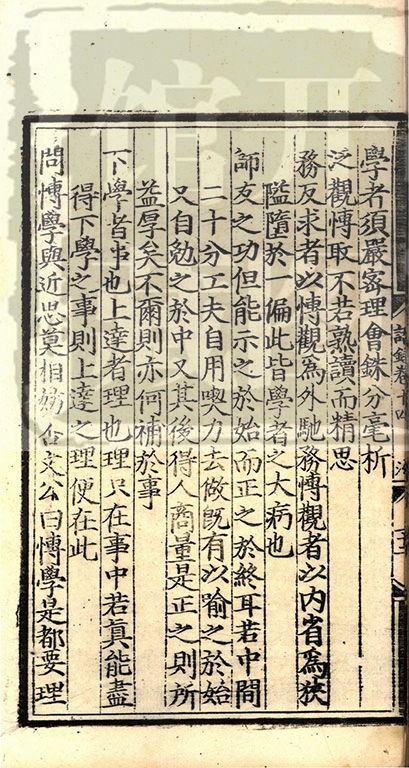 學者須嚴密理會銖分毫析
泛觀愽取不若熟讀而精思
務反求者以愽觀爲外馳務愽觀者以内省爲狹
隘墮於一偏此皆學者之大病也
師友之功但能示之於始而正之於終耳若中間
二十分工夫自用喫力去做旣有以喻之於始
又自勉之於中又其後得人商量是正之則所
益厚矣不爾則亦何補於事
下學者事也上達者理也理只在事中若真能盡
得下學之事則上達之理便在此
問愽學與近思莫相妨否文公曰愽學是都要理